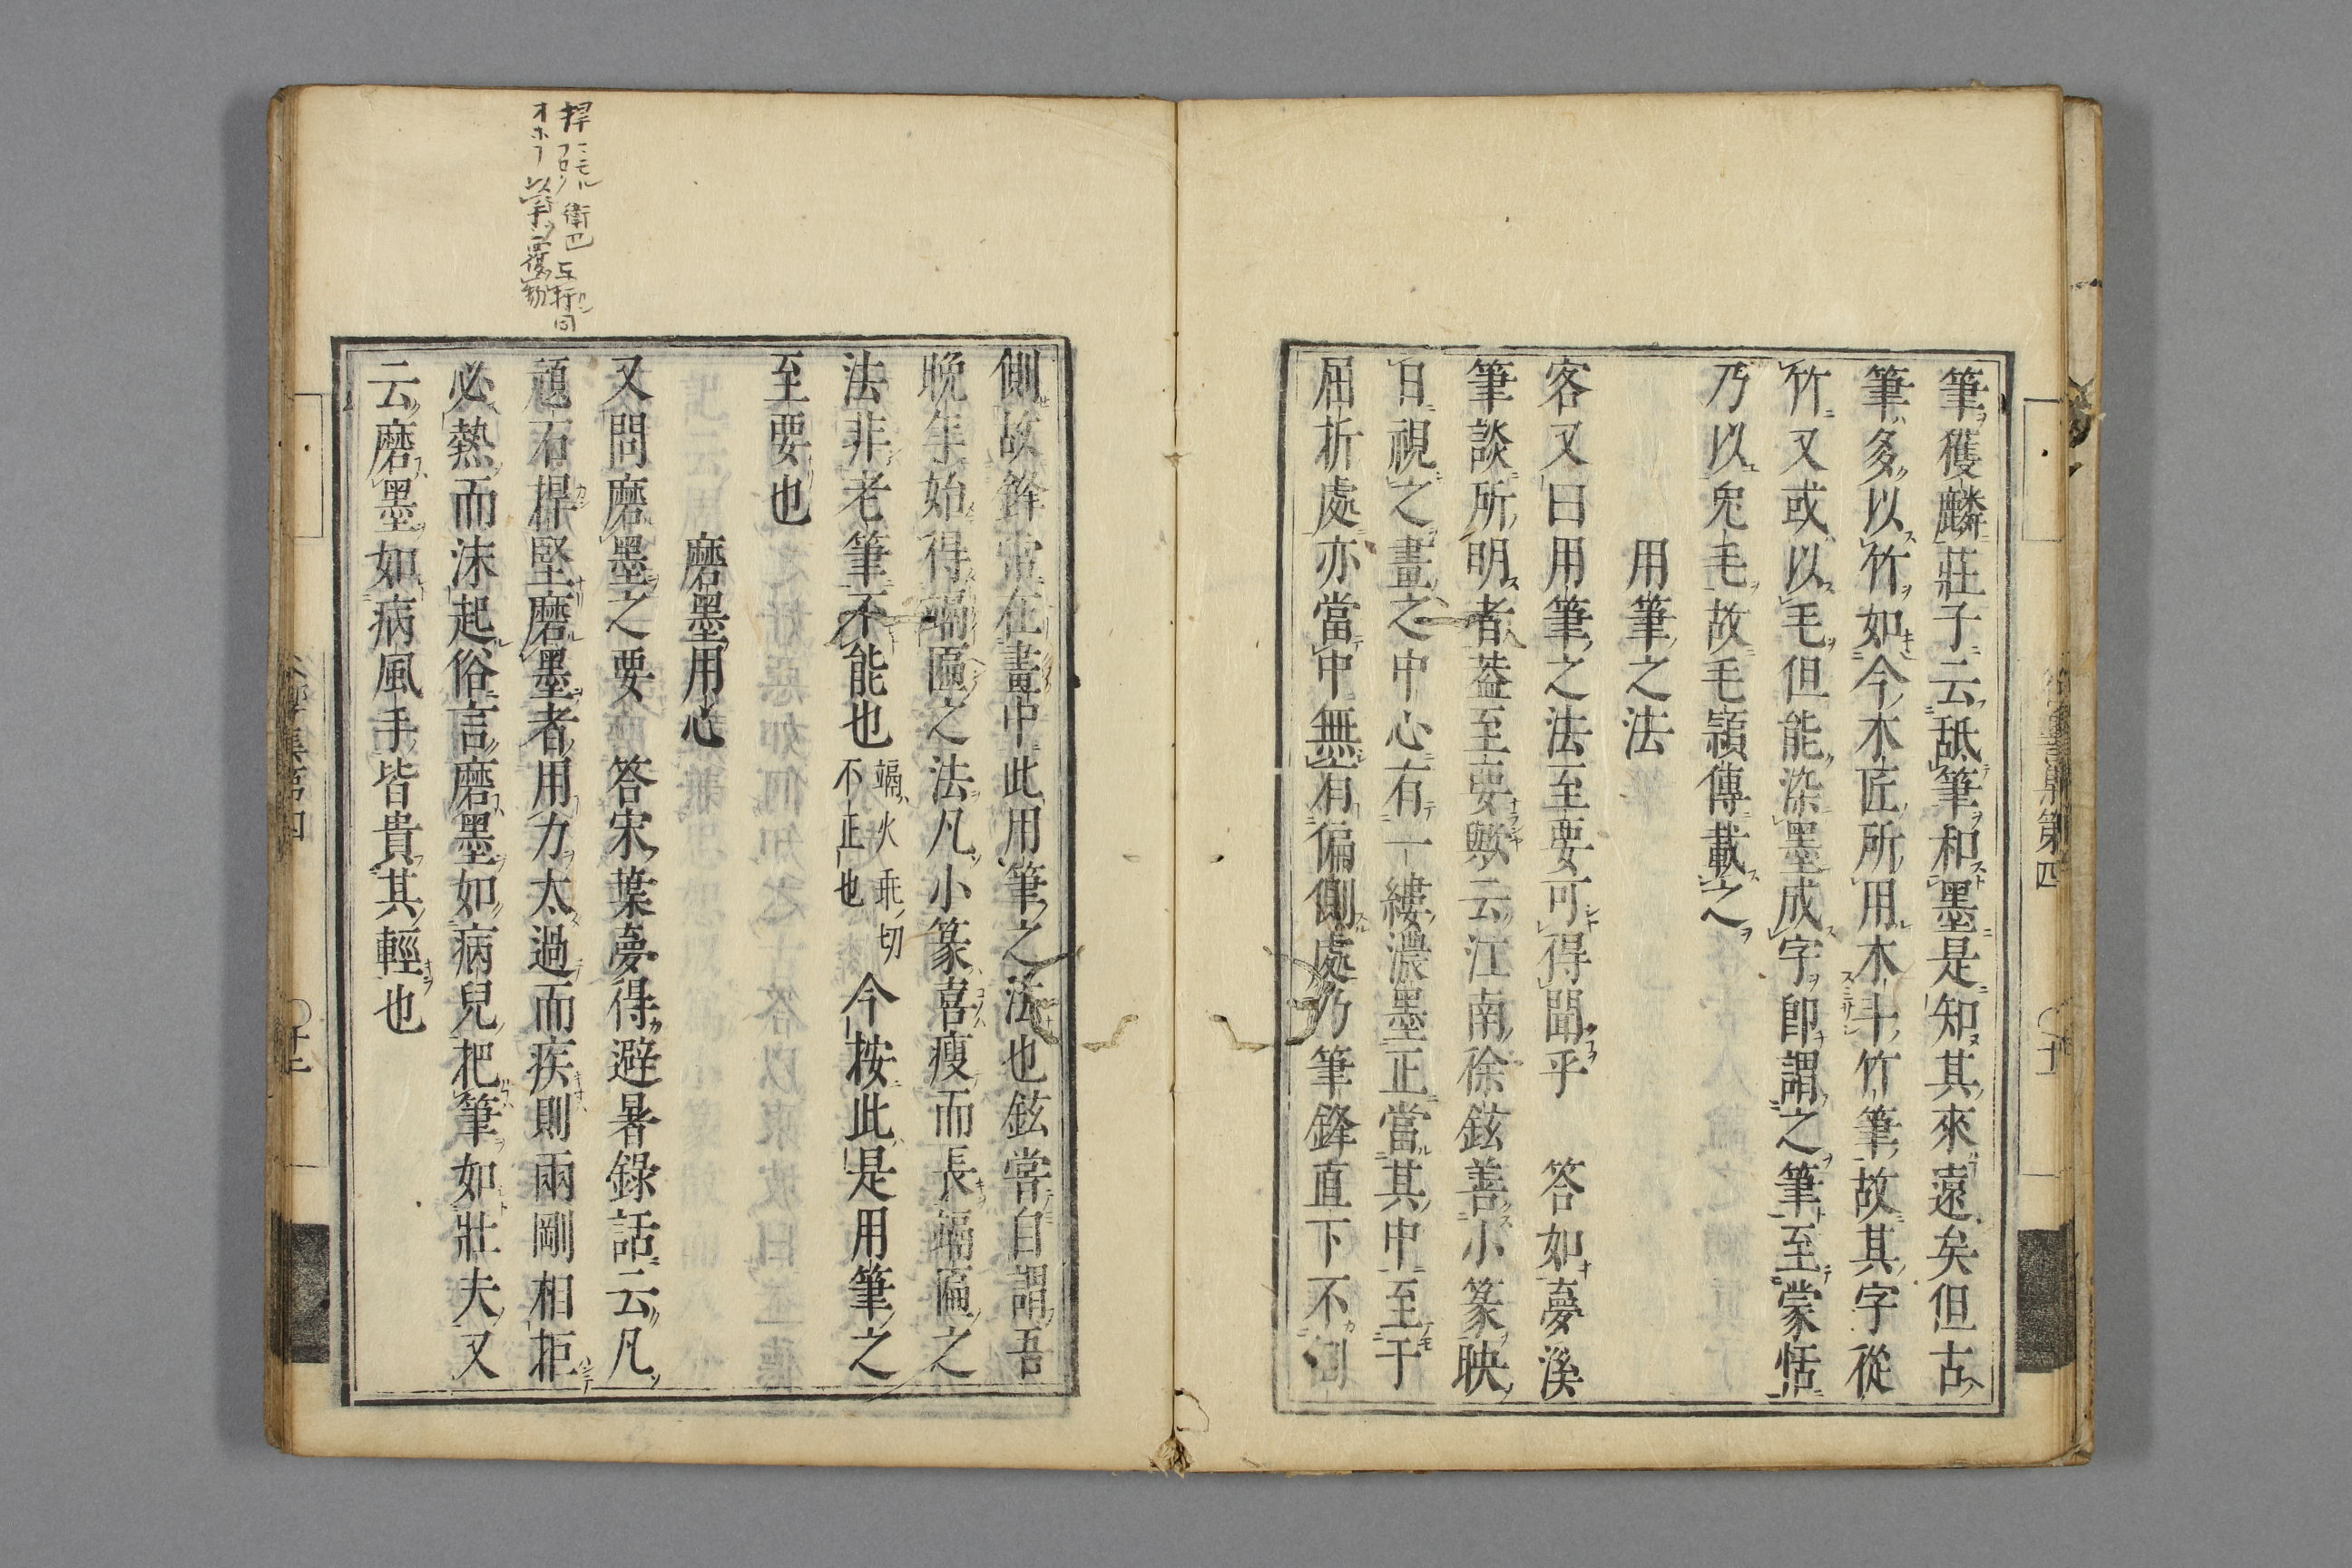 筆獲麟莊子云舐筆和墨是知其來遠矣但古
筆多以竹如今木匠所用木斗竹筆故其字從
竹又或以毛但能染墨成字卽謂之筆至蒙恬
乃以兔毛故毛穎傳載之
用筆之法
客又曰用筆之法至要可得聞乎　答如夢溪
筆談所明者葢至要歟云江南徐鉉善小篆映
日視之畫之中心有一縷濃墨正當其中至于
屈折處亦當中無有偏側處乃筆鋒直下不倒
側故鋒常在畫中此用筆之法也鉉嘗自謂吾
晚年始得竵匾之法凡小篆喜瘦而長竵匾之
法非老筆不能也竵火乖切
不正也　今按此是用筆之
至要也
磨墨用心
又問磨墨之要　答宋葉夢得避暑錄話云凡
石桿堅磨墨者用力太過而疾則兩剛相拒
必熱而沫起俗言磨墨如病兒把筆如壯夫又
云磨墨如病風手皆貴其輕也